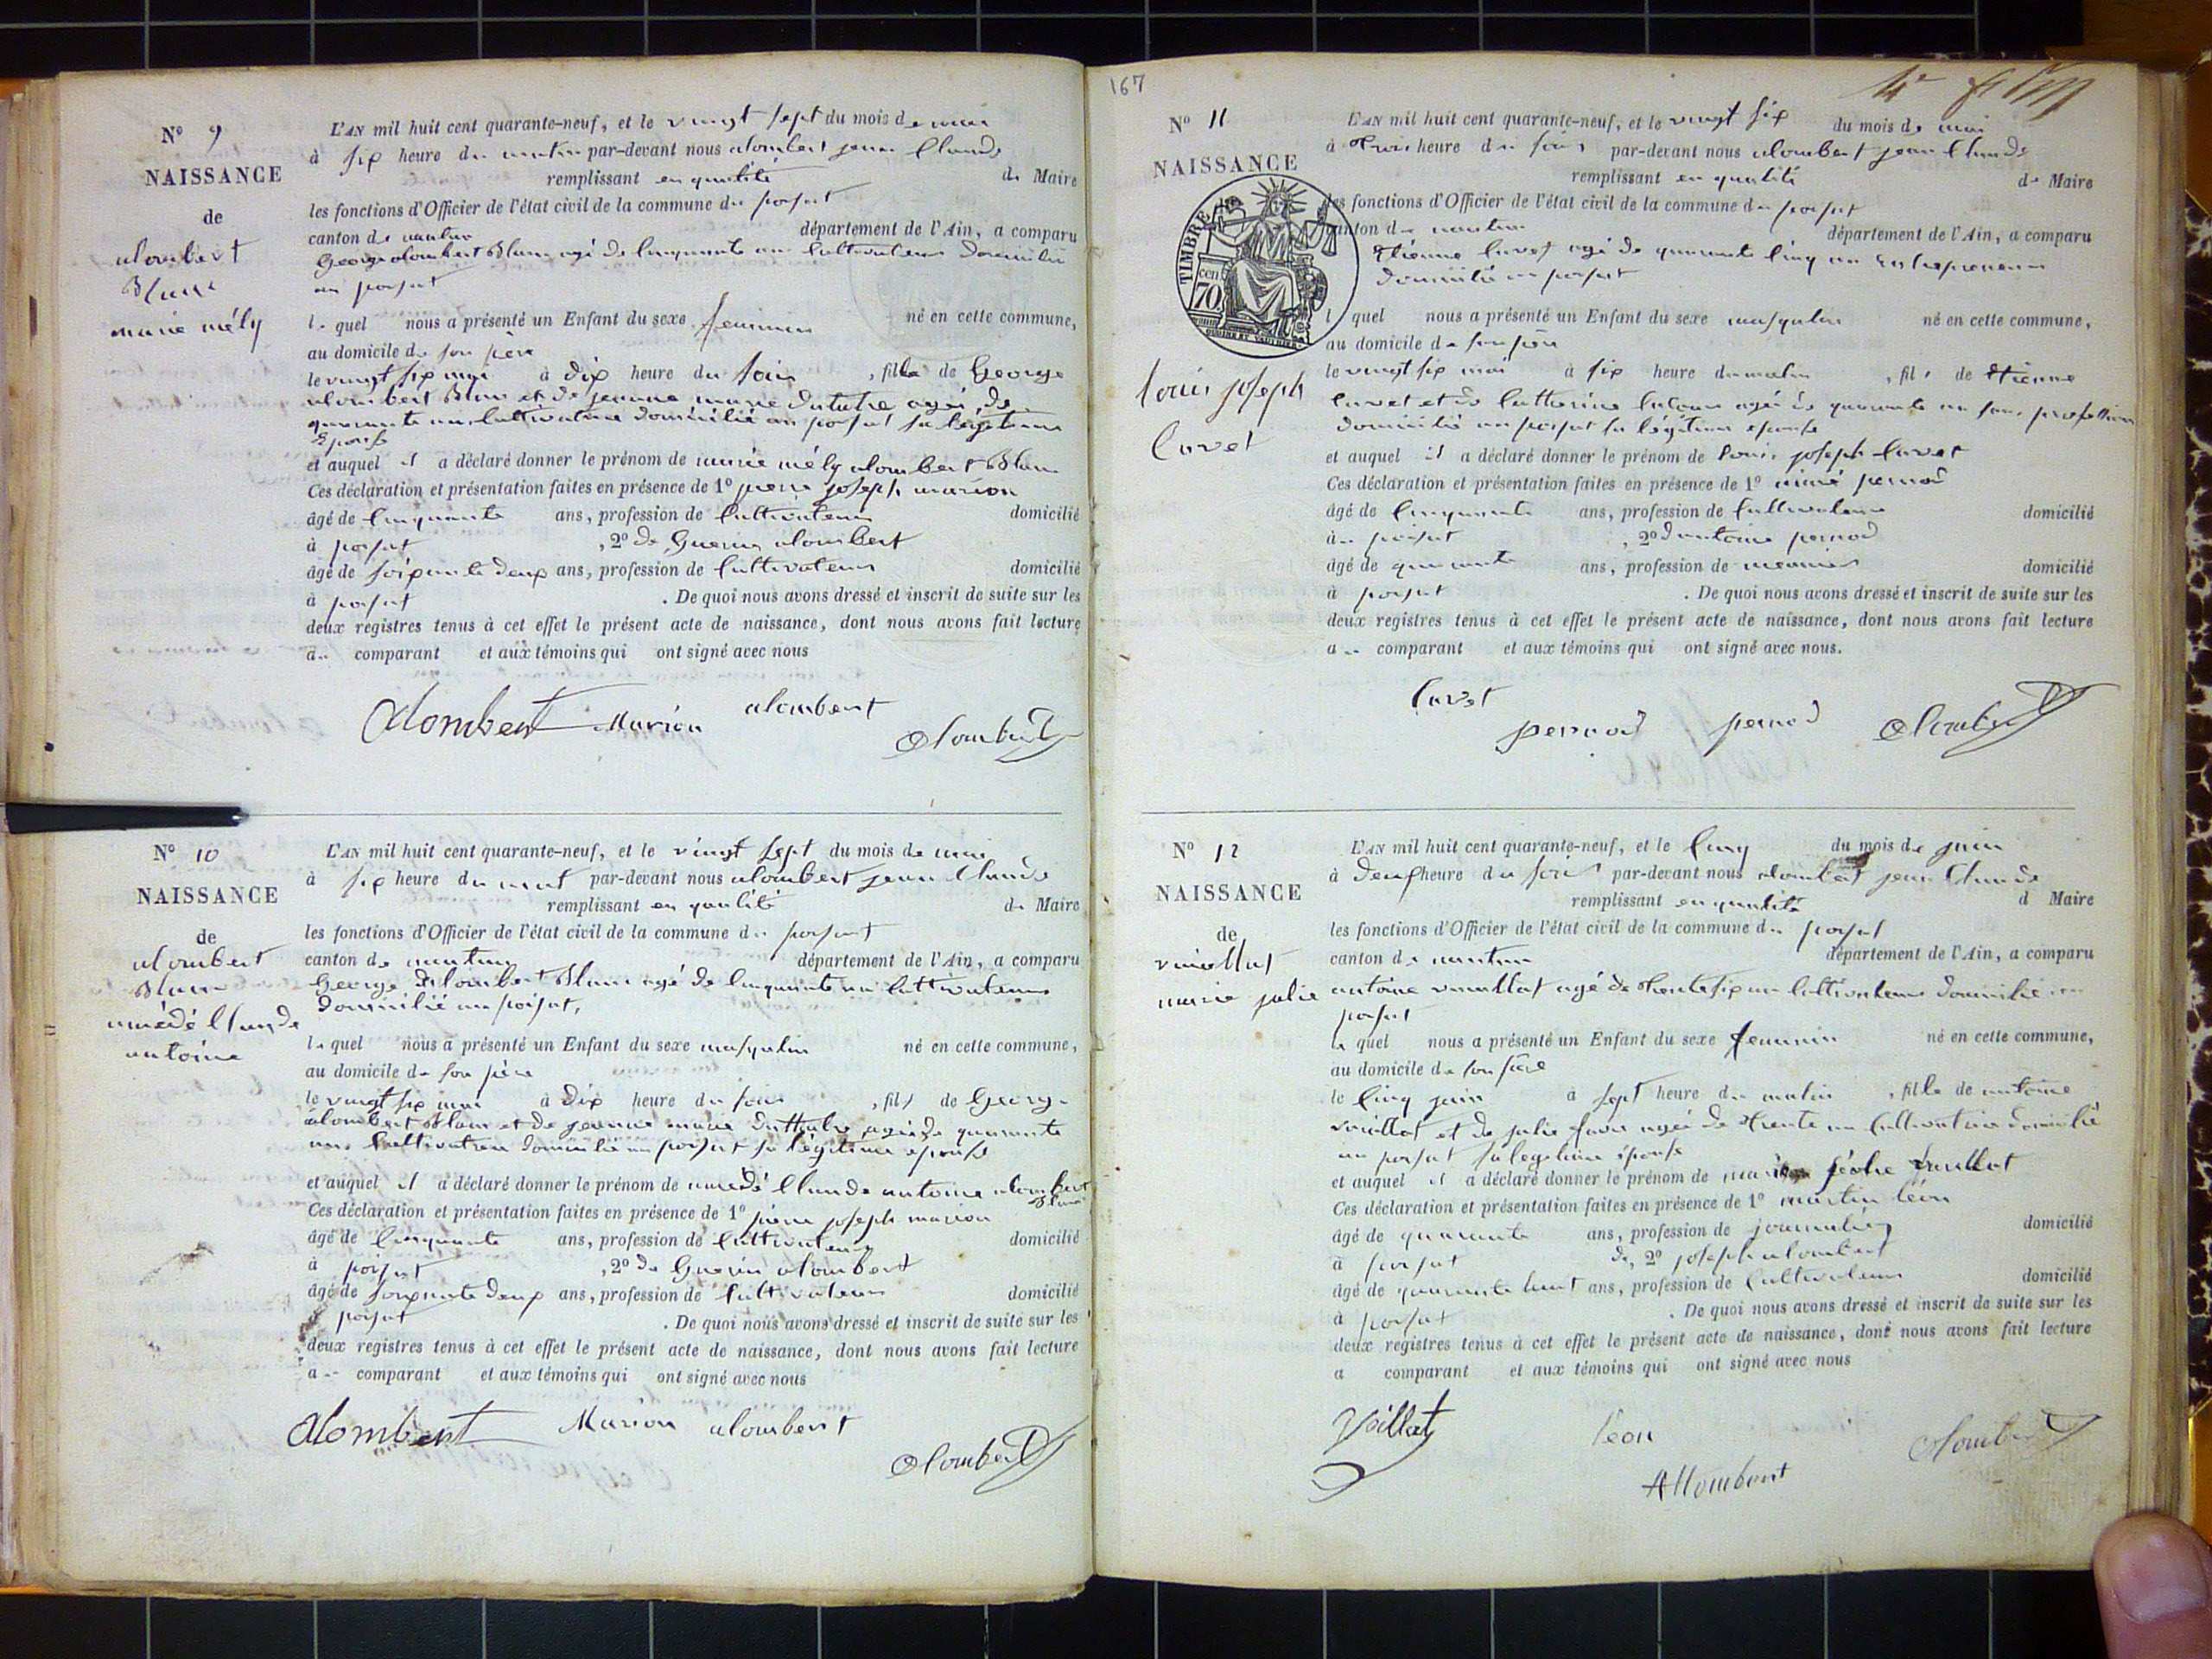 N° 9
NAISSANCE
de
alombert
Blanc
marie mély
L'AN mil huit cent quarante-neuf, et le vingt sept du mois de mai
à six heure du matin par-devant nous alombert jean Claude
remplissant en qualité de Maire
les fonctions d'Officier de l'état civil de la commune du
canton de nantua département de l'Ain, a comparu
George alombert Blanc agé de cinquante an Cultivateur domicilié
au
le quel nous a présenté un Enfant du sexe feminin né en cette commune,
au domicile de son père
le vingt six mai à dix heure du soir , fille de George
alombert Blanc et de jeanne marie agée de
quarante ans Cultivatrice domicilié au sa legitime
Epouse
et auquel il a déclaré donner le prénom de marie mély alombert Blanc
Ces déclaration et présentation faites en présence de 1° pierre joseph marion
âgé de Cinquante ans, profession de Cultivateur domicilié
à , 2° de Guerin alombert
âgé de soixante deux ans, profession de Cultivateur domicilié
à . De quoi nous avons dressé et inscrit de suite sur les
deux registres tenus à cet effet le présent acte de naissance, dont nous avons fait lecture
au comparant et aux témoins qui ont signé avec nous
Alombert Marion alombert
Alombert
N° 10
NAISSANCE
de
alombert
Blanc
amédé Claude
antoine
L'AN mil huit cent quarante-neuf, et le vingt sept du mois de mai
à six heure du mat par-devant nous alombert jean Claude
remplissant en qualité de Maire
les fonctions d'Officier de l'état civil de la commune du
canton de nantua département de l'Ain, a comparu
George alombert Blanc agé de cinquante an Cultivateur
domicilié au
le quel nous a présenté un Enfant du sexe masqulin né en cette commune,
au domicile de son père
le vingt six mai à dix heure du soir , fils de George
alombert Blanc et de jeanne marie agée de quarante
ans Cultivatrice domicilié au sa légitime épouse
et auquel il a déclaré donner le prénom de amédé Claude antoine alombert
Blanc
Ces déclaration et présentation faites en présence de 1° pierre joseph marion
âgé de Cinquante ans, profession de Cultivateur domicilié
à , 2° de Guerin alombert
âgé de soixante deux ans, profession de Cultivateur domicilié
à . De quoi nous avons dressé et inscrit de suite sur les
deux registres tenus à cet effet le présent acte de naissance, dont nous avons fait lecture
au comparant et aux témoins qui ont signé avec nous
Alombert Marion alombert
Alombert
167
N° 11
NAISSANCE
TIMBRE
cen
70
louis joseph
Curet
L'AN mil huit cent quarante-neuf, et le vingt six du mois de mai
à trois heure du soir par-devant nous alombert jean Claude
remplissant en qualité de Maire
les fonctions d'Officier de l'état civil de la commune du
canton de nantua département de l'Ain, a comparu
Etienne Curet agé de quarante cinq an Entrepreneur
domicilié au
le quel nous a présenté un Enfant du sexe masqulin né en cette commune,
au domicile de son père
le vingt six mai à six heure du matin , fils de Etienne
Curet et de Catherine agée de quarante an sans profession
domicilié au sa légitime epouse
et auquel il a déclaré donner le prénom de louis joseph Curet
Ces déclaration et présentation faites en présence de 1° aimé pernod
âgé de Cinquante ans, profession de Cultivateur domicilié
à , 2° d'antoine pernod
âgé de quarante ans, profession de domicilié
à . De quoi nous avons dressé et inscrit de suite sur les
deux registres tenus à cet effet le présent acte de naissance, dont nous avons fait lecture
au comparant et aux témoins qui ont signé avec nous.
Curet
pernod pernod Alombert
N° 12
NAISSANCE
de
marie julie
L'AN mil huit cent quarante-neuf, et le Cinq du mois de juin
à deux heure du soir par-devant nous alombert jean Claude
remplissant en qualité d Maire
les fonctions d'Officier de l'état civil de la commune du
canton de nantua département de l'Ain, a comparu
antoine agé de trente six an Cultivateur domicilié au
le quel nous a présenté un Enfant du sexe feminin né en cette commune,
au domicile de son père
le Cinq juin à sept heure du matin , fille de antoine
et de julie agée de trente an Cultivatrice domicilié
au sa legitime épouse
et auquel il a déclaré donner le prénom de
Ces déclaration et présentation faites en présence de 1° martin léon
âgé de quarante ans, profession de journalier domicilié
à de, 2° joseph alombert
âgé de quarante huit ans, profession de Cultivateur domicilié
à . De quoi nous avons dressé et inscrit de suite sur les
deux registres tenus à cet effet le présent acte de naissance, dont nous avons fait lecture
a comparant et aux témoins qui ont signé avec nous
Voillat léon Alombert
Allombert